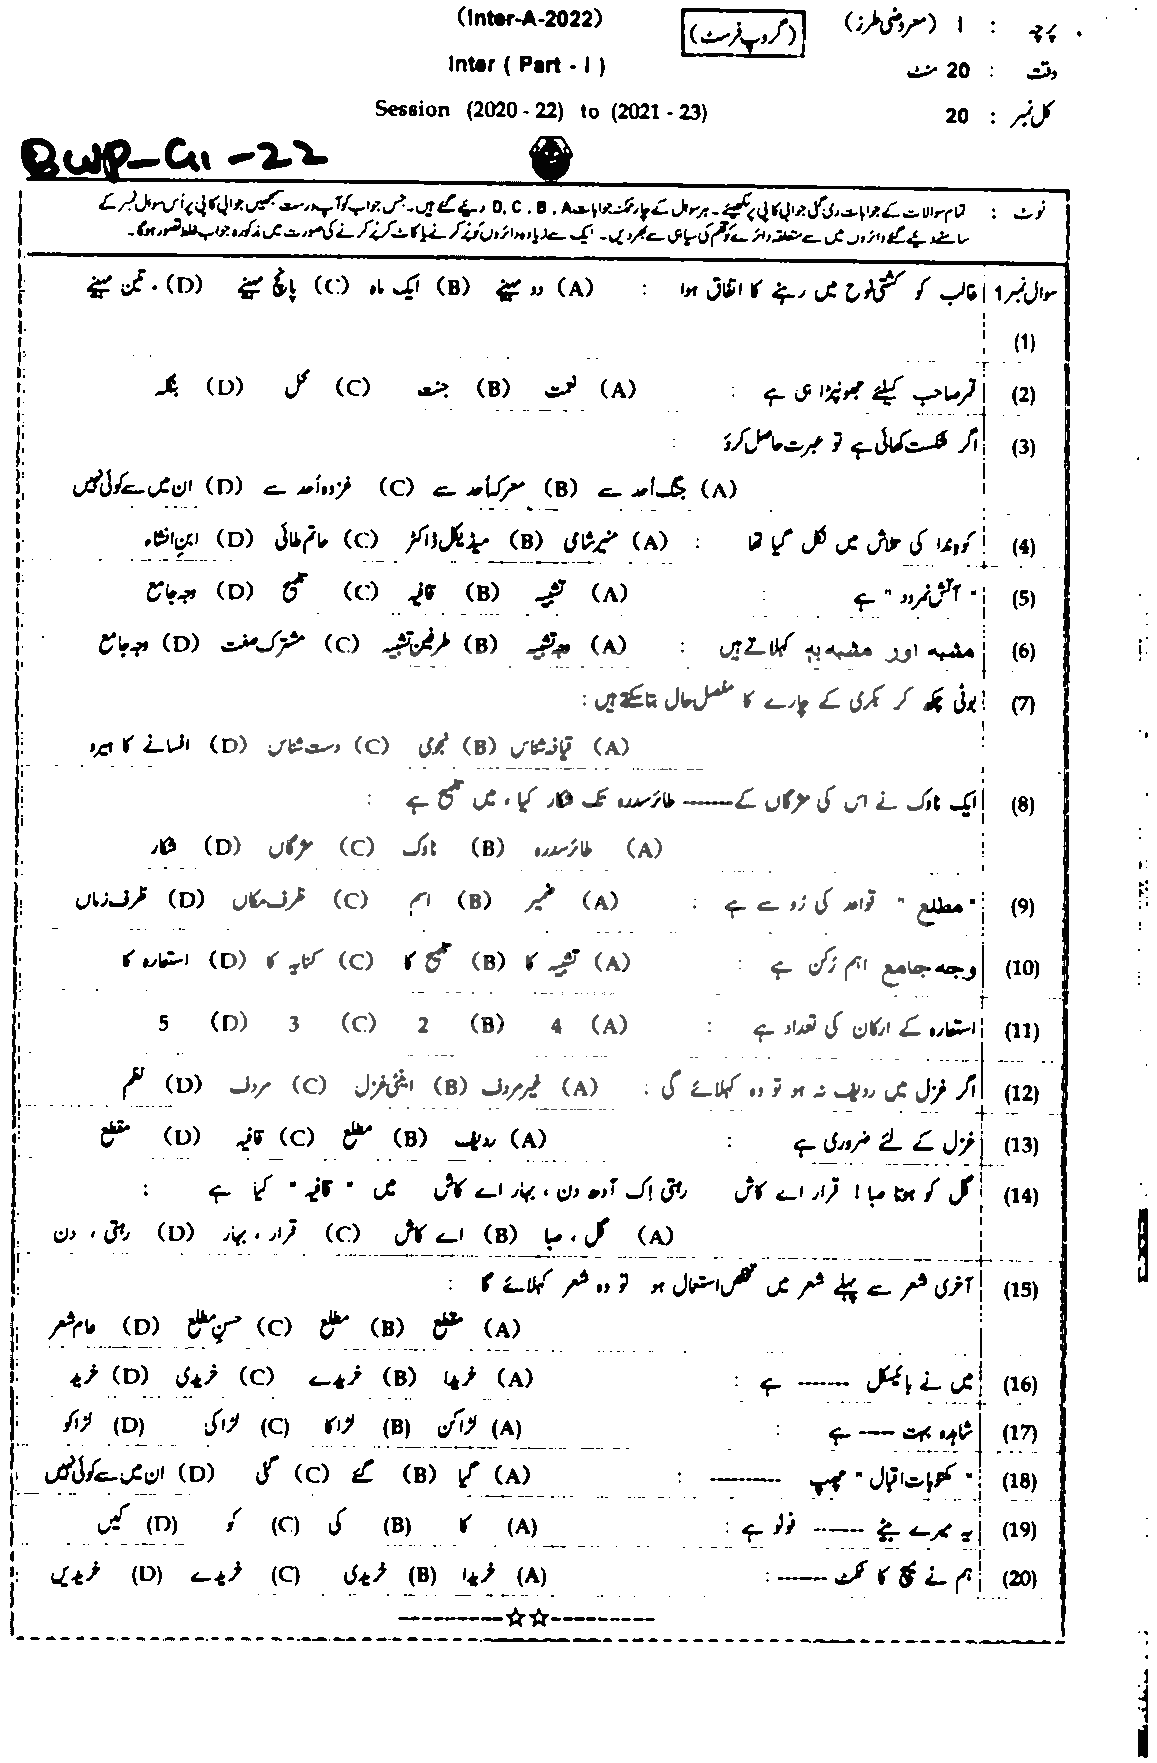 پرچہ : I (معروضی طرز) (گروپ فرسٹ) (Inter-A-2022)
وقت : 20 منٹ Inter ( Part - I )
کل نمبر : 20 Session (2020 - 22) to (2021 - 23)
BWP-G1-22
نوٹ : تمام سوالات کے جوابات دی گئی جوابی کاپی پر لکھیئے۔ ہر سوال کے چار ممکنہ جوابات D, C, B, A دیئے گئے ہیں۔ جس جواب کو آپ درست سمجھیں جوابی کاپی پر اُس سوال نمبر کے
سامنے دیئے گئے دائروں میں سے متعلقہ دائرے کو قلم کی سیاہی سے بھر دیں۔ ایک سے زیادہ دائروں کو پُر کرنے یا کاٹ کر پُر کرنے کی صورت میں مذکورہ جواب غلط تصور ہوگا۔
سوال نمبر 1 غالب کو کشتی نوح میں رہنے کا اتفاق ہوا : (A) دو مہینے (B) ایک ماہ (C) پانچ مہینے (D) تین مہینے
(1)
(2) قمر صاحب کیلئے جھونپڑا ہی ہے : (A) نعمت (B) جنت (C) محل (D) بنگلہ
(3) اگر شکست کھائی ہے تو عبرت حاصل کرو :
(A) جنگ اُحد سے (B) معرکہ اُحد سے (C) غزوہ اُحد سے (D) ان میں سے کوئی نہیں
(4) کوہ ندا کی تلاش میں نکل گیا تھا : (A) منیر شامی (B) میڈیکل ڈاکٹر (C) حاتم طائی (D) ابنِ انشاء
(5) "آتش نمرود" ہے : (A) تشبیہ (B) قافیہ (C) تلمیح (D) وجہ جامع
(6) مشبہ اور مشبہ بہ کہلاتے ہیں : (A) وجہ تشبیہ (B) طرفین تشبیہ (C) مشترک صفت (D) وجہ جامع
(7) بوٹی چکھ کر بکری کے چارے کا مفصل حال بتا سکتے ہیں :
(A) قیافہ شناس (B) نجومی (C) دست شناس (D) افسانے کا ہیرو
(8) ایک ناوک نے اس کی مژگاں کے ------ طائر سدرہ تک شکار کیا، میں تلمیح ہے :
(A) طائر سدرہ (B) ناوک (C) مژگاں (D) شکار
(9) "مطلع" قواعد کی رُو سے ہے : (A) ضمیر (B) اسم (C) ظرف مکاں (D) ظرف زماں
(10) وجہ جامع اہم رُکن ہے : (A) تشبیہ کا (B) تلمیح کا (C) کنایہ کا (D) استعارہ کا
(11) استعارہ کے ارکان کی تعداد ہے : (A) 4 (B) 2 (C) 3 (D) 5
(12) اگر غزل میں ردیف نہ ہو تو وہ کہلائے گی : (A) غیر مردف (B) اینٹی غزل (C) مردف (D) نظم
(13) غزل کے لئے ضروری ہے : (A) ردیف (B) مطلع (C) قافیہ (D) مقطع
(14) گل کو ہوتا صبا! قرار اے کاش رہتی اِک آدھ دن، بہار اے کاش میں "قافیہ" کیا ہے :
(A) گل، صبا (B) اے کاش (C) قرار، بہار (D) رہتی، دن
(15) آخری شعر سے پہلے شعر میں تخلص استعمال ہو تو وہ شعر کہلائے گا :
(A) مقطع (B) مطلع (C) حسنِ مطلع (D) عام شعر
(16) میں نے بائیسکل ------- ہے : (A) خریدا (B) خریدے (C) خریدی (D) خرید
(17) شاہدہ بہت ---- ہے : (A) لڑاکن (B) لڑاکا (C) لڑاکی (D) لڑاکو
(18) "مکتوبات اقبال" چھپ --------- : (A) گیا (B) گئے (C) گئی (D) ان میں سے کوئی نہیں
(19) یہ میرے بیٹے ------ فوٹو ہے : (A) کا (B) کی (C) کو (D) کیں
(20) ہم نے میچ کا ٹکٹ ------ : (A) خریدا (B) خریدی (C) خریدے (D) خریدیں
----------☆☆----------